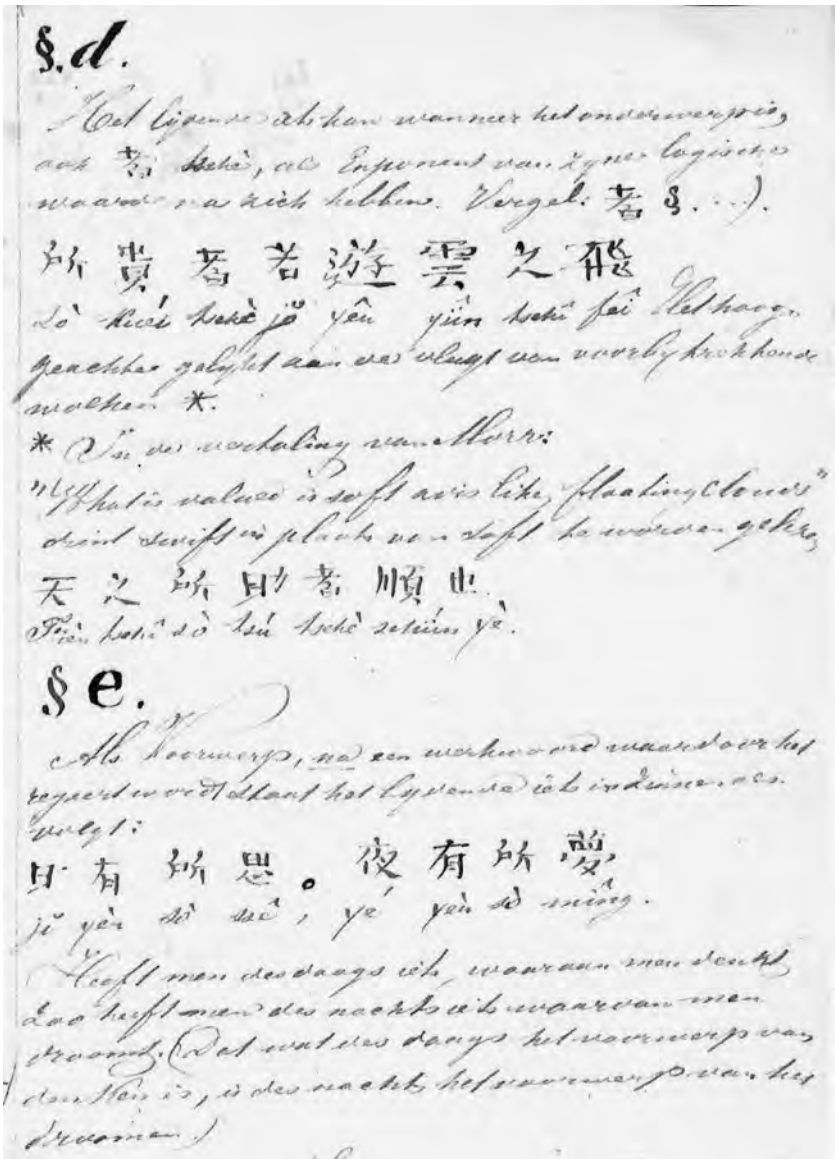 §.d.
Het lijdende iets kan wanneer het onderwerp is,
ook 者 tschè, als Exponent van zyne logische
waarde na zich hebben. Vergel: 者 §. ...).
所 貴 者 若 遊 雲 之 飛
sò kuéi tschè jŏ yêu yûn tschī feī Het hoog-
geachte gelykt aan de vlugt van voorbytrekkende
wolken *.
* In de vertaling van Morr:
"What is valued is soft as is like floating clouds"
dient swift in plaats van soft te worden
天 之 所 助 者 順 也
Tiēn tschī sò tsú tschè schún yè.
§ e.
Als Voorwerp, na een werkwoord waardoor het
regeert wordt staat het lydende iets in als
volgt:
日 有 所 思 。 夜 有 所 夢
jĭ yèu sò ssē, yé yèu sò múng.
Heeft men des daags iets, waaraan men denkt,
zoo heeft men des nachts iets waarvan men
droomt. (Dat wat des daags het voorwerp van
denken is, is des nachts het voorwerp van het
droomen.)